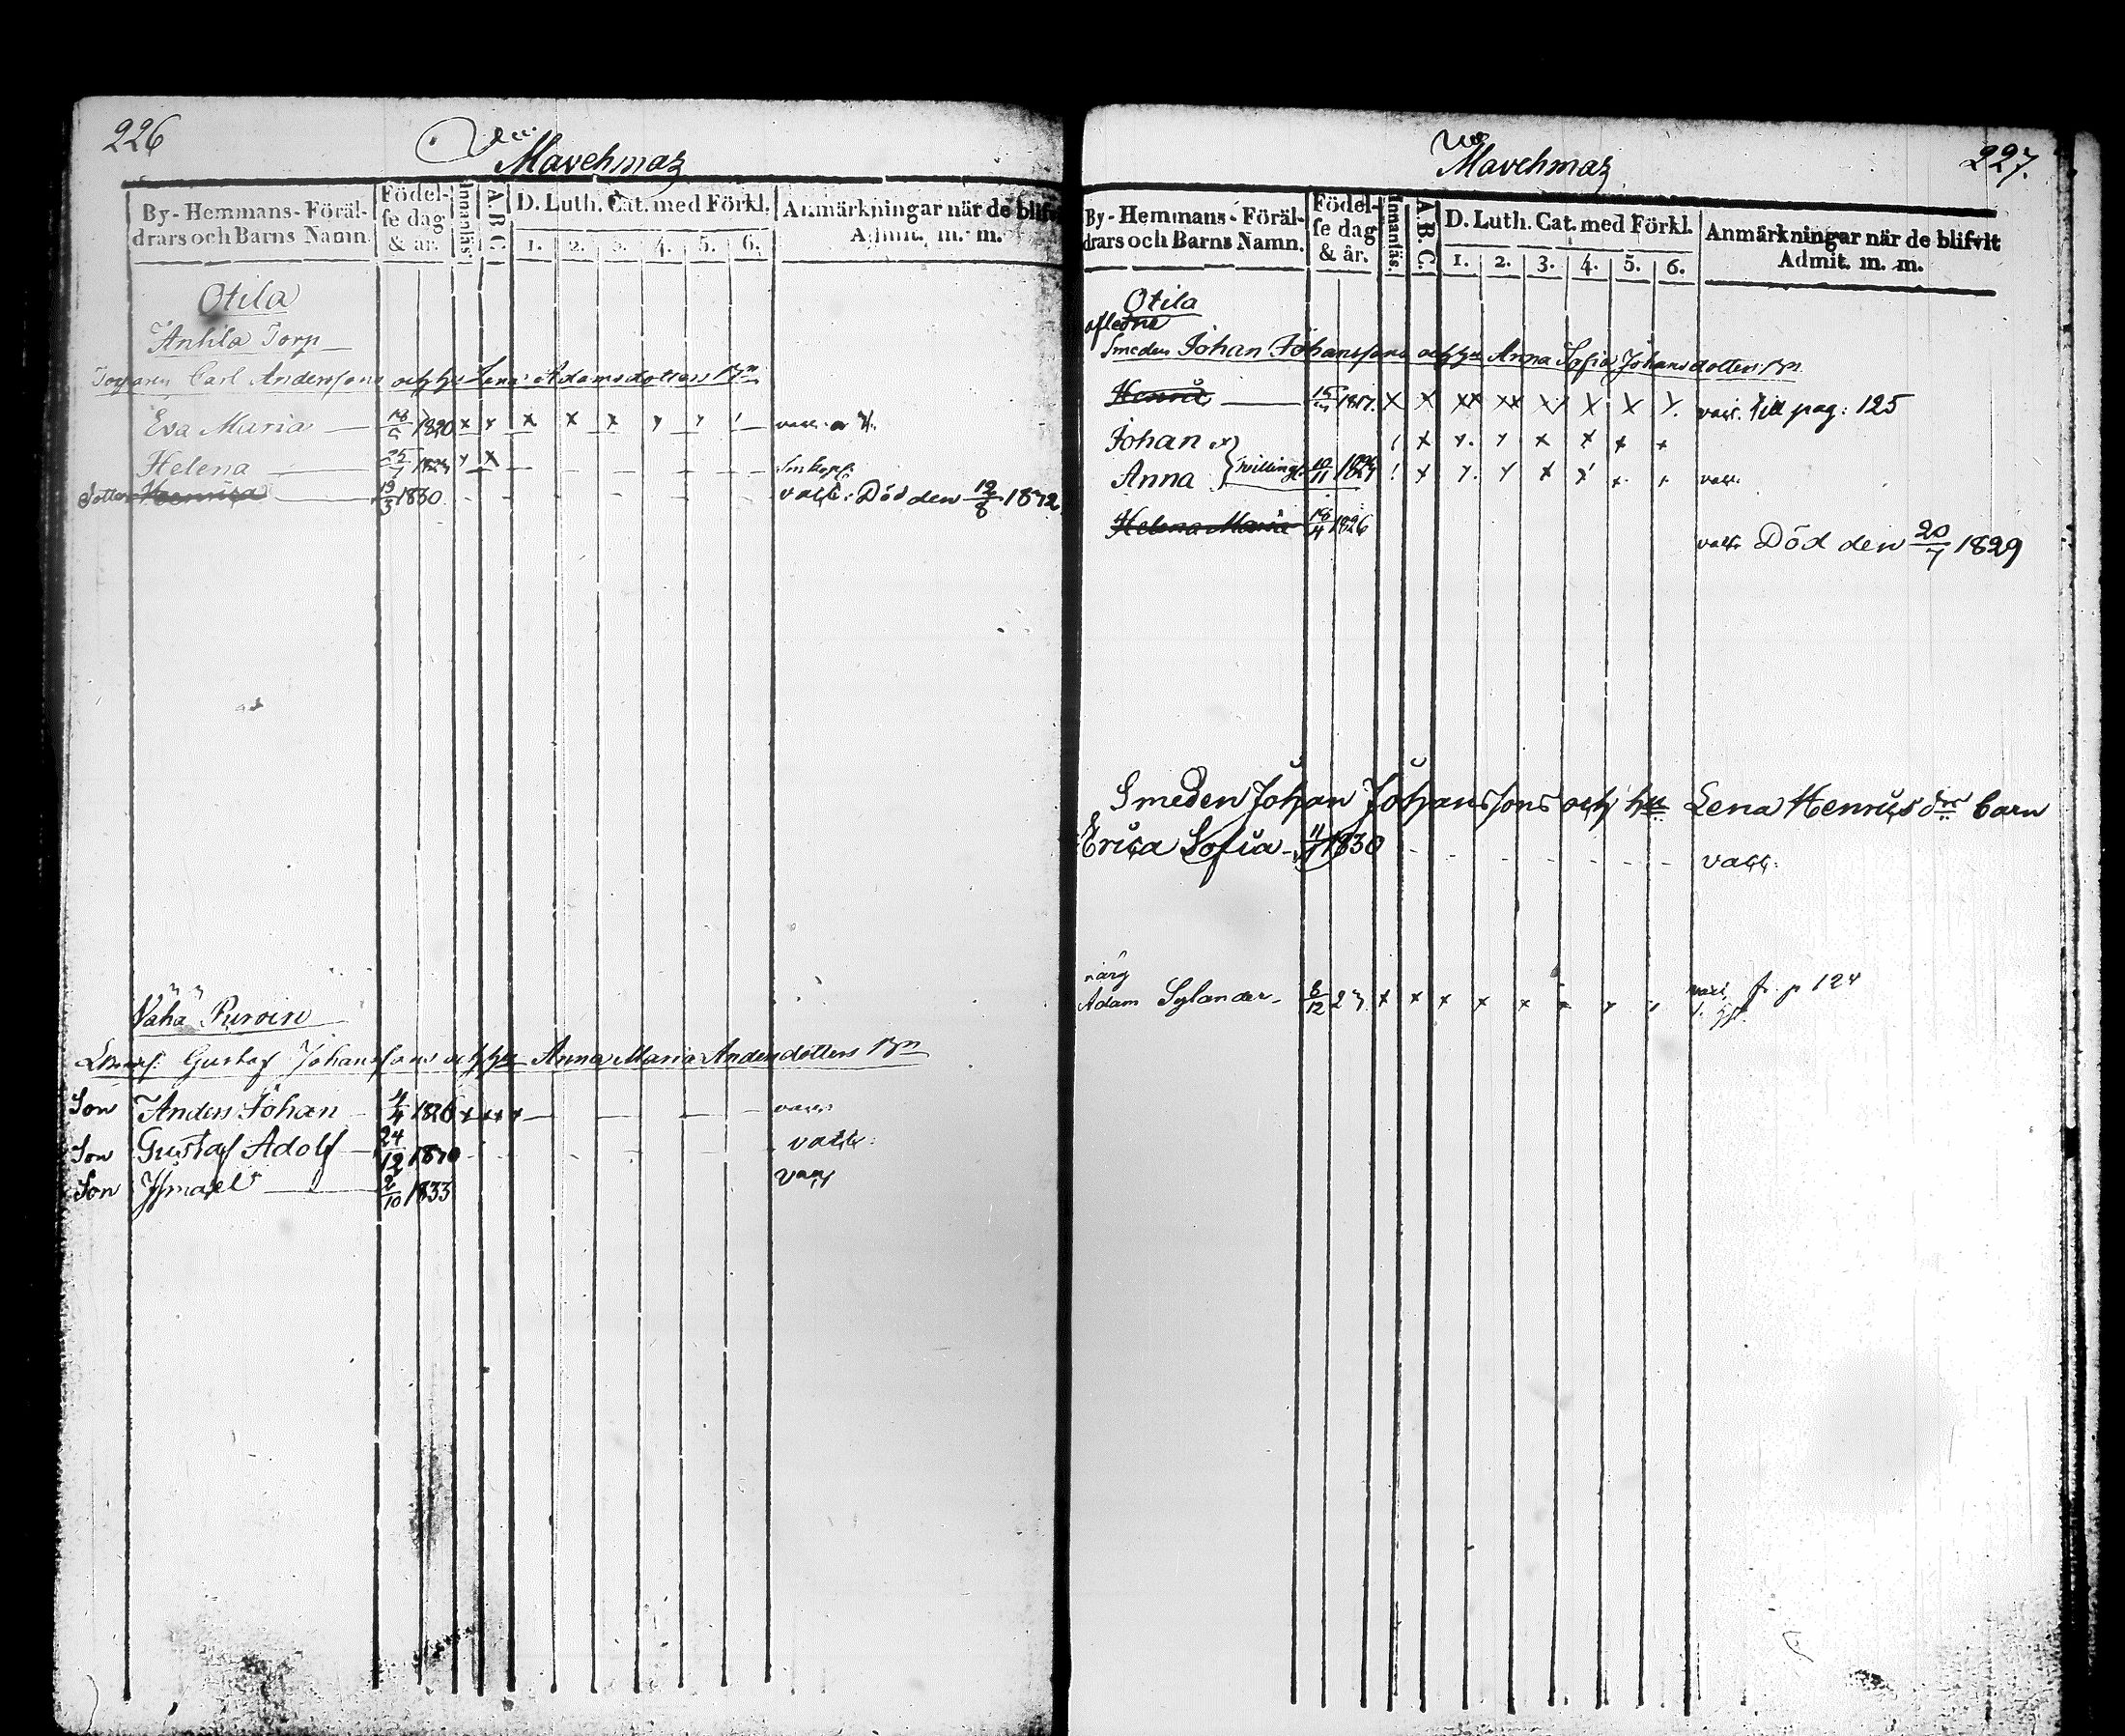 226
Mavehmaz
By-Hemmans-Föräl-
drars och Barns Namn.
Födel-
se dag
& år.
Innanläs.
A.B.C.
D. Luth. Cat. med Förkl.
1. 2. 3. 4. 5. 6.
Anmärkningar när de blifv
Admit. m. m.
Otila
Anhla Torp
Carl Anderssons och hu Lena Adamsdotters Bn
Eva Maria 1820 x x x x x
Helena
Dotter Henrica 19/3 1830 vacc: Död den 12/8 1832
Wähä Purvin
Gustaf Johanssons och hu Anna Maria Andersdotters Bn
Son Anders Johan 1826 x x x x vacc:
Son Gustaf Adolf 24/12 1830 vacc:
Son Ismael 2/10 1833 vacc
227.
Mavehmaz
By-Hemmans-Föräl-
drars och Barns Namn.
Födel-
se dag
& år.
Innanläs.
A.B.C.
D. Luth. Cat. med Förkl.
1. 2. 3. 4. 5. 6.
Anmärkningar när de blifvit
Admit. m. m.
Otila
afledne
Smeden Johan Johanssons och hu Anna Sofia Johansdotters Bn
Henric 1817. x x xx xx x x x x. vacc. till pag: 125
Johan
Anna tvillingar vacc.
Helena Maria 18/4 1826
vacc. Död den 20/7 1829
Smeden Johan Johanssons och hu Lena Henrics dr barn
Erica Sofia 11/11 1830 vacc:
Adam Sylander 8/12 27 x x x x x vacc fr. p 124